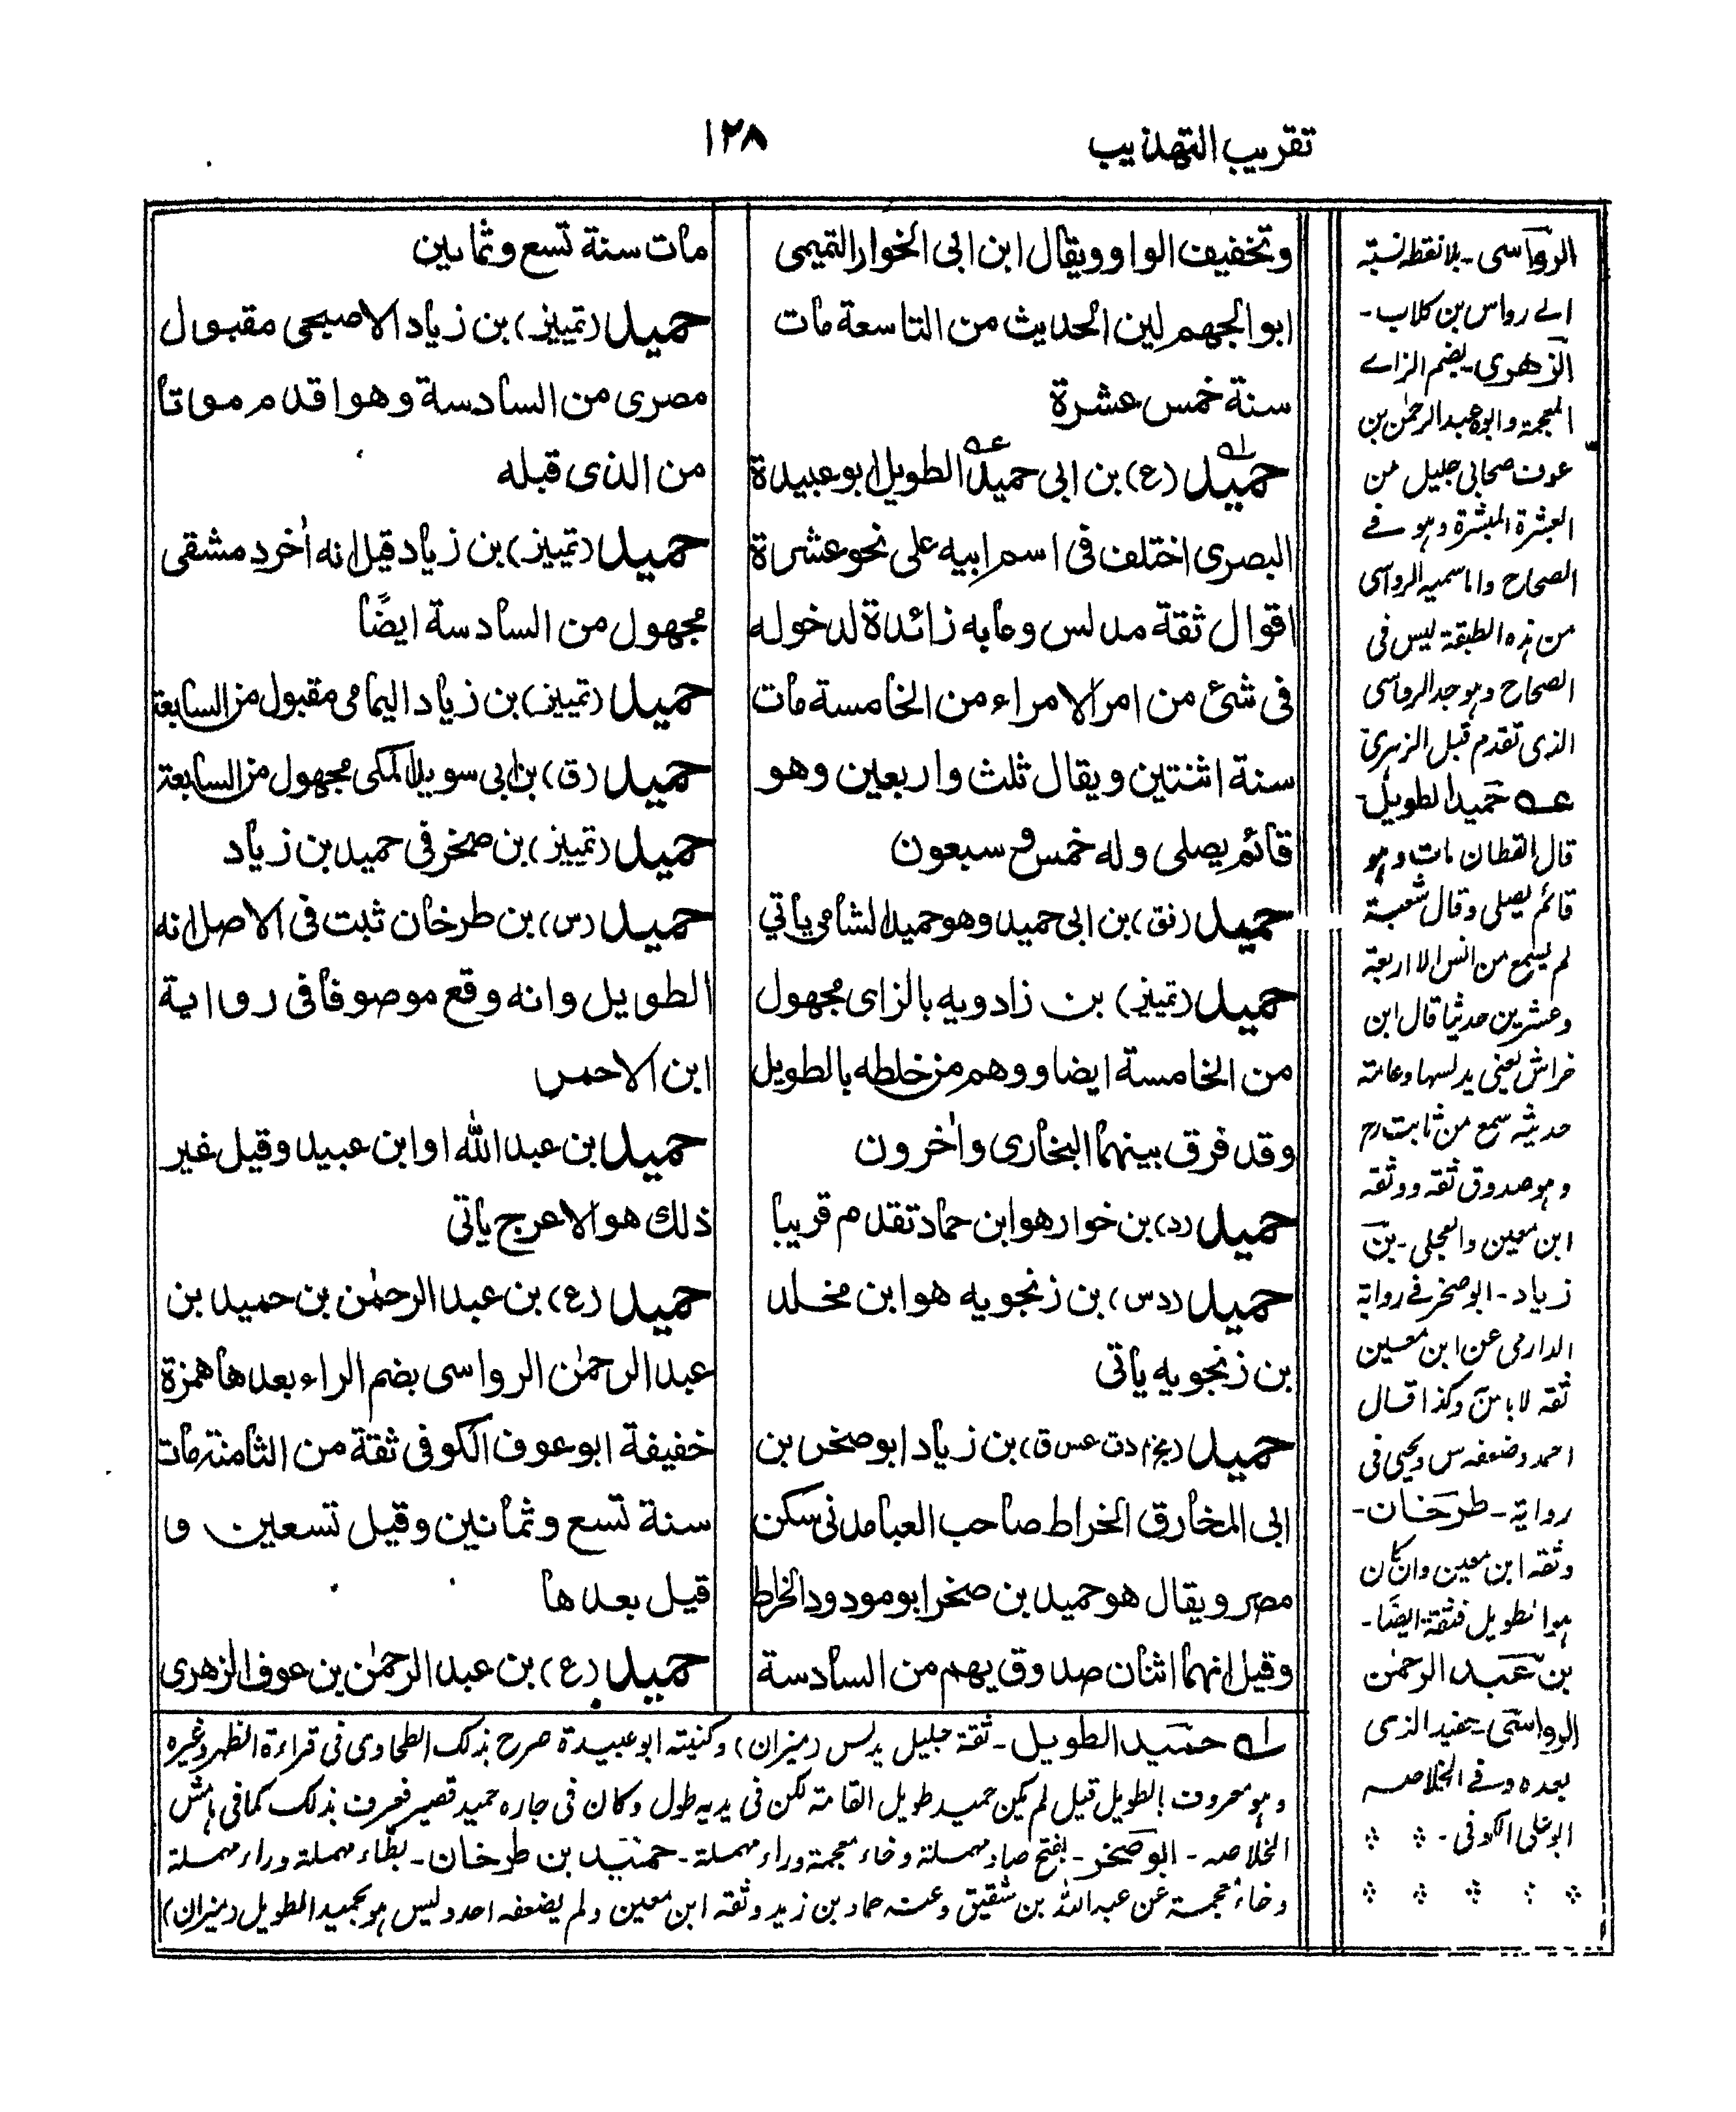 تقريب التهذيب
١٢٨
وتخفيف الواو ويقال ابن ابى الخوار التميمى
ابو الجهم لين الحديث من التاسعة مات
سنة خمس عشرة
حميد (ع) بن ابى حميد الطويل ابو عبيدة
البصرى اختلف فى اسم ابيه على نحو عشرة
اقوال ثقة مدلس وعابه زائدة لدخوله
فى شئ من امر الامراء من الخامسة مات
سنة اثنتين ويقال ثلث واربعين وهو
قائم يصلى وله خمس و سبعون
حميد (نق) بن ابى حميد وهو حميد الشامى ياتي
حميد (تمييز) بن زادويه بالزاى مجهول
من الخامسة ايضا ووهم من خلطه بالطويل
وقد فرق بينهما البخارى واٰخرون
حميد (د) بن خوار هو ابن حماد تقدم قريبا
حميد (دس) بن زنجويه هو ابن مخلد
بن زنجويه ياتى
حميد (بخ م د ت عس ق) بن زياد ابو صخر بن
ابى المخارق الخراط صاحب العبا مدنى سكن
مصر ويقال هو حميد بن صخر ابو مودود الخراط
وقيل انهما اثنان صدوق يهم من السادسة
مات سنة تسع وثمانين
حميد (تمييز) بن زياد الاصبحى مقبول
مصرى من السادسة وهو اقدم موتا
من الذى قبله
حميد (تمييز) بن زياد قيل انه اٰخر دمشقى
مجهول من السادسة ايضًا
حميد (تمييز) بن زياد اليمامى مقبول من السابعة
حميد (ق) بن ابى سويد المكى مجهول من السابعة
حميد (تمييز) بن صخر فى حميد بن زياد
حميد (س) بن طرخان ثبت فى الاصل انه
الطويل وانه وقع موصوفا فى رواية
ابن الاحمر
حميد بن عبد الله او ابن عبيد وقيل غير
ذلك هو الاعرج ياتى
حميد (ع) بن عبد الرحمٰن بن حميد بن
عبد الرحمٰن الرواسى بضم الراء بعدها همزة
خفيفة ابو عوف الكوفى ثقة من الثامنة مات
سنة تسع وثمانين وقيل تسعين و
قيل بعدها
حميد (ع) بن عبد الرحمٰن بن عوف الزهرى
الروٓاسى - بلا نقطه نسبته
الے رواس بن كلاب -
الزهرى - بضم الزاے
المعجمة وابوه عبد الرحمٰن بن
عوف صحابى جليل من
العشرة المبشرة وهو فے
الصحاح واما سميه الرواسى
من هذه الطبقة ليس فى
الصحاح وهو جد الرواسى
الذى تقدم قبل الزهرى
عـه حميد الطويل -
قال القطان مات وهو
قائم يصلى وقال شعبة
لم يسمع من انس الا اربعة
وعشرين حديثا قال ابن
خراش يعنى يدلسها وعامته
حديثه سمع من ثابت رح
وهو صدوق ثقه ووثقه
ابن معين والعجلى - بن
زياد - ابو صخر فے رواية
الدارمى عن ابن معين
ثقه لا باس وكذا قال
احمد وضعفه س ويحيى فى
رواية - طرخان -
وثقه ابن معين وان كان
هو الطويل فثقة ايضًا -
بن عبد الرحمٰن
الرواسى - حفيد الذى
بعده وفے الخلاصه
ابو على الكوفى -
لـه حميد الطويل - ثقة جليل يدلس (ميزان) وكنيته ابو عبيدة صرح بذلك الطحاوى فى قراءة الظهر وغيره
وهو معروف بالطويل قيل لم يكن حميد طويل القامة لكن فى يديه طول وكان فى جاره حميد قصير فعرف بذلك كما فى هامش
الخلاصه - ابو صخر - بفتح صاد مهملة وخاء معجمة وراء مهملة - حميد بن طرخان - بطاء مهملة وراء مهملة
وخاء معجمة عن عبد الله بن شقيق وعنه حماد بن زيد وثقه ابن معين ولم يضعفه احد وليس هو بحميد الطويل (ميزان)